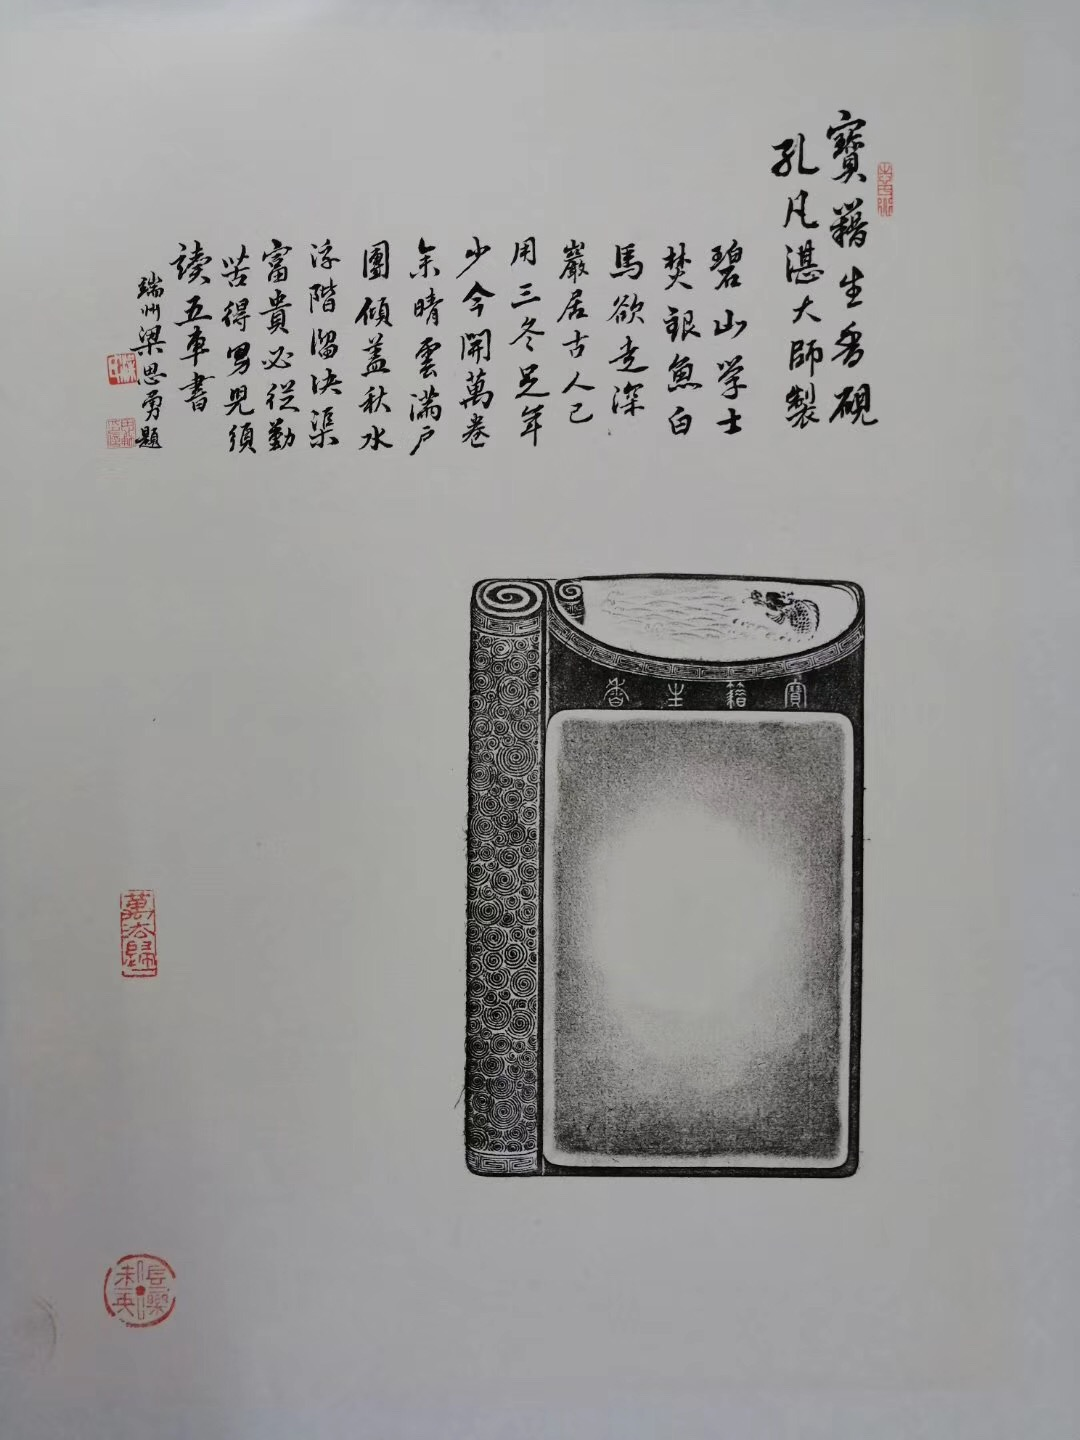 寶籍生香硯
孔凡湛大師製
碧山学士
焚銀魚白
馬欲走深
巖居古人已
用三冬足年
少今開萬卷
余晴雲滿户
團傾盖秋水
浮階溜决渠
富貴必從勤
苦得男兒須
读五車書
端州梁思勇題
寶籍生香
萬法歸一